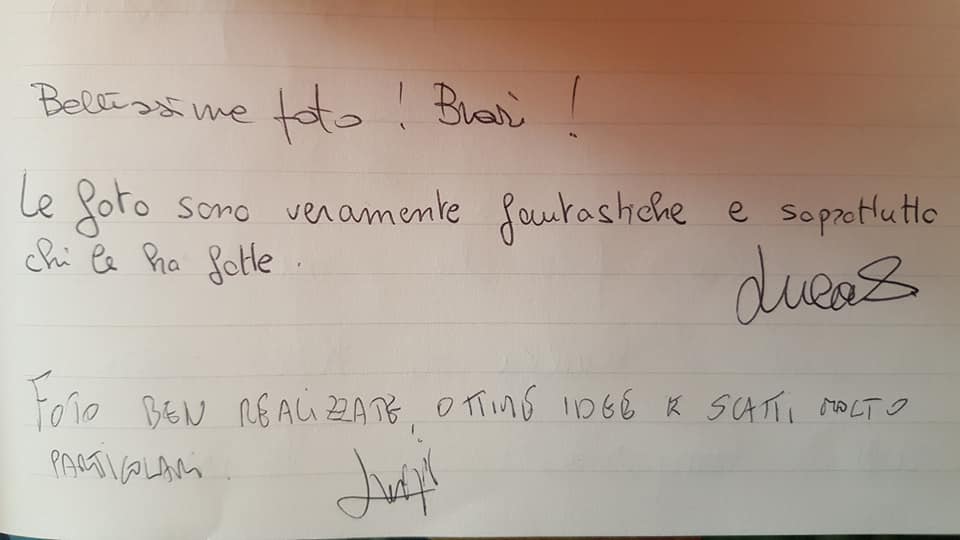 Bellissime foto! Bravi!
Le foto sono veramente fantastiche e soprattutto
chi le ha fatte.
Lucas
FOTO BEN REALIZZATE, OTTIME IDEE E SCATTI MOLTO
PARTICOLARI.